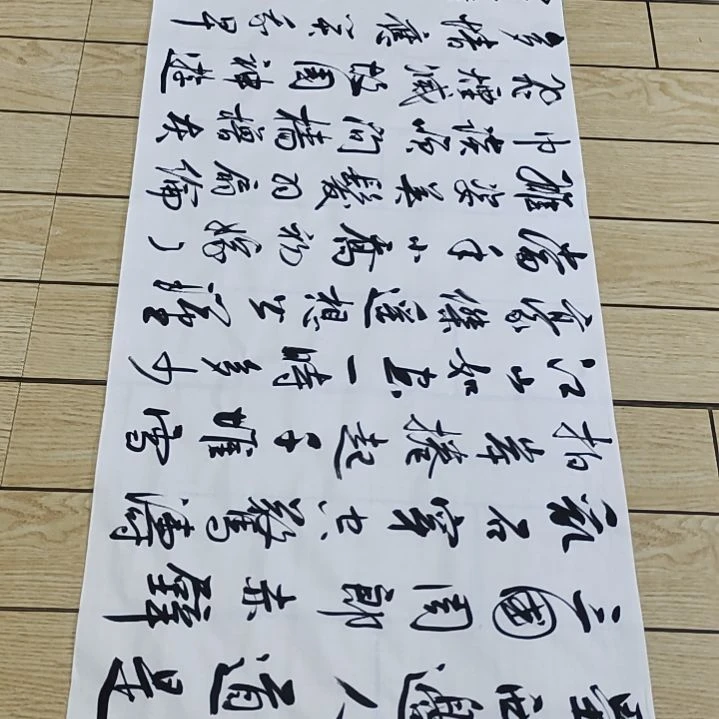 壘西邊人道是
三國周郎赤壁
亂石穿空驚濤
拍岸捲起千堆雪
江山如畫一時多少
豪傑遙想公瑾
當年小喬初嫁了
雄姿英發羽扇綸
巾談笑間檣櫓灰
飛煙滅故國神遊
多情應笑我早